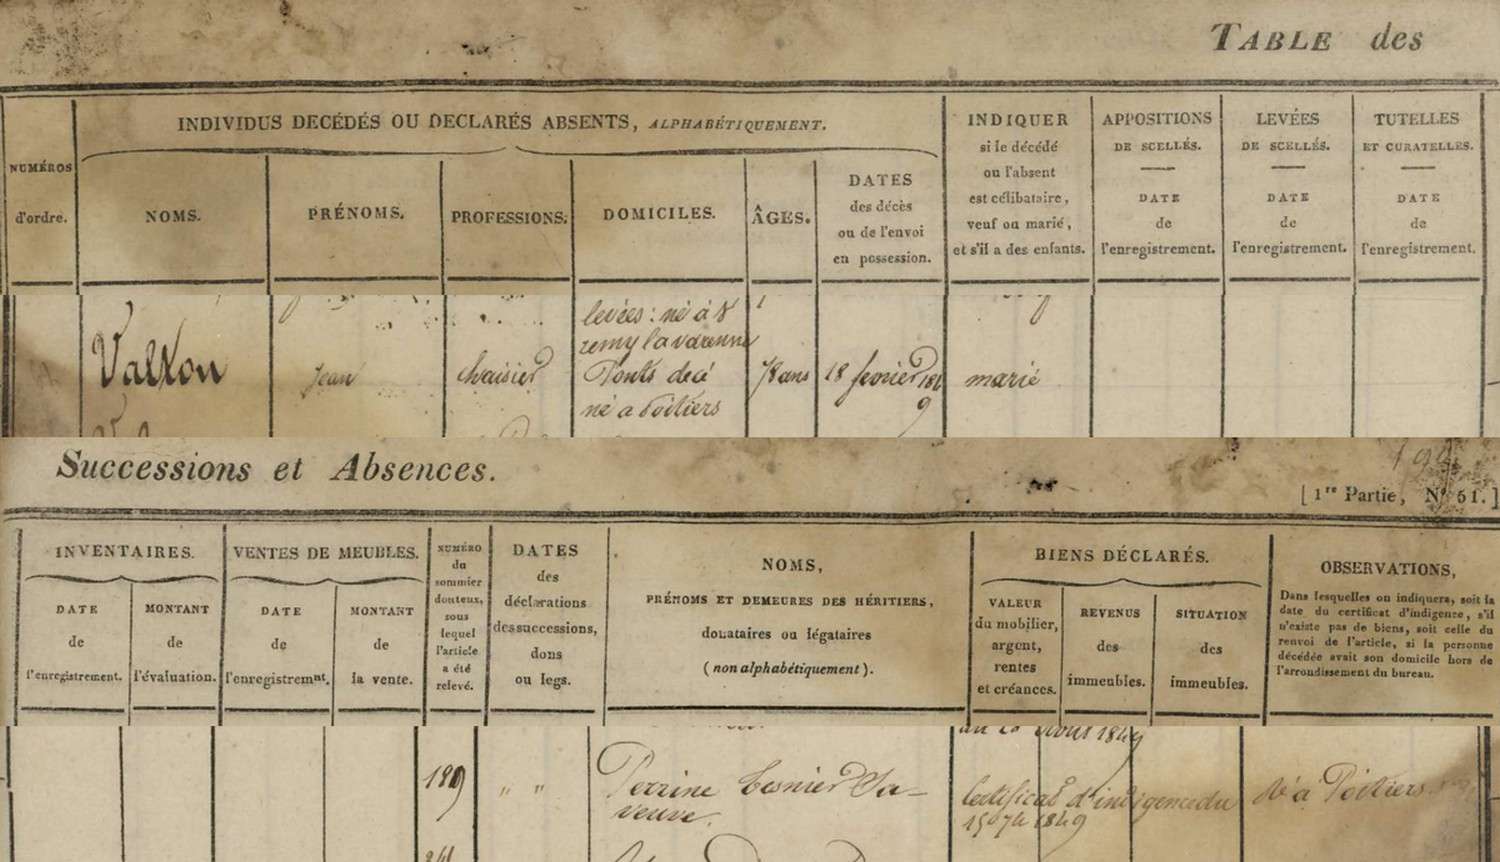 TABLE des
INDIVIDUS DÉCÉDÉS OU DECLARÉS ABSENTS, ALPHABÉTIQUEMENT.
NUMÉROS
d'ordre.
NOMS.
PRÉNOMS.
PROFESSIONS.
DOMICILES.
ÂGES.
DATES
des décès
ou de l'envoi
en possession.
INDIQUER
si le décédé
ou l'absent
est célibataire,
veuf ou marié,
et s'il a des enfants.
APPOSITIONS
DE SCELLÉS.
DATE
de
l'enregistrement.
LEVÉES
DE SCELLÉS.
DATE
de
l'enregistrement.
TUTELLES
ET CURATELLES.
DATE
de
l'enregistrement.
levées : né à St
remy la varenne
Jean
chaisier
Ponts de cé
né a Poitiers
78 ans
18 fevrier 184
9
marié
Successions et Absences.
[ 1re Partie, N° 51. ]
INVENTAIRES.
DATE
de
l'enregistrement.
MONTANT
de
l'évaluation.
VENTES DE MEUBLES.
DATE
de
l'enregistremnt.
MONTANT
de
la vente.
NUMÉRO
du
sommier
douteux,
sous
lequel
l'article
a été
relevé.
DATES
des
déclarations
des successions,
dons
ou legs.
NOMS,
PRÉNOMS ET DEMEURES DES HÉRITIERS,
donataires ou légataires
(non alphabétiquement).
BIENS DÉCLARÉS.
VALEUR
du mobilier,
argent,
rentes
et créances.
REVENUS
des
immeubles.
SITUATION
des
immeubles.
OBSERVATIONS,
Dans lesquelles on indiquera, soit la
date du certificat d'indigence, s'il
n'existe pas de biens, soit celle du
renvoi de l'article, si la personne
décédée avait son domicile hors de
l'arrondissement du bureau.
août 1849
" "
Perrine Besnier Sa-
veuve.
Certificat d'indigence du
15 7bre 1849
Né à Poitiers